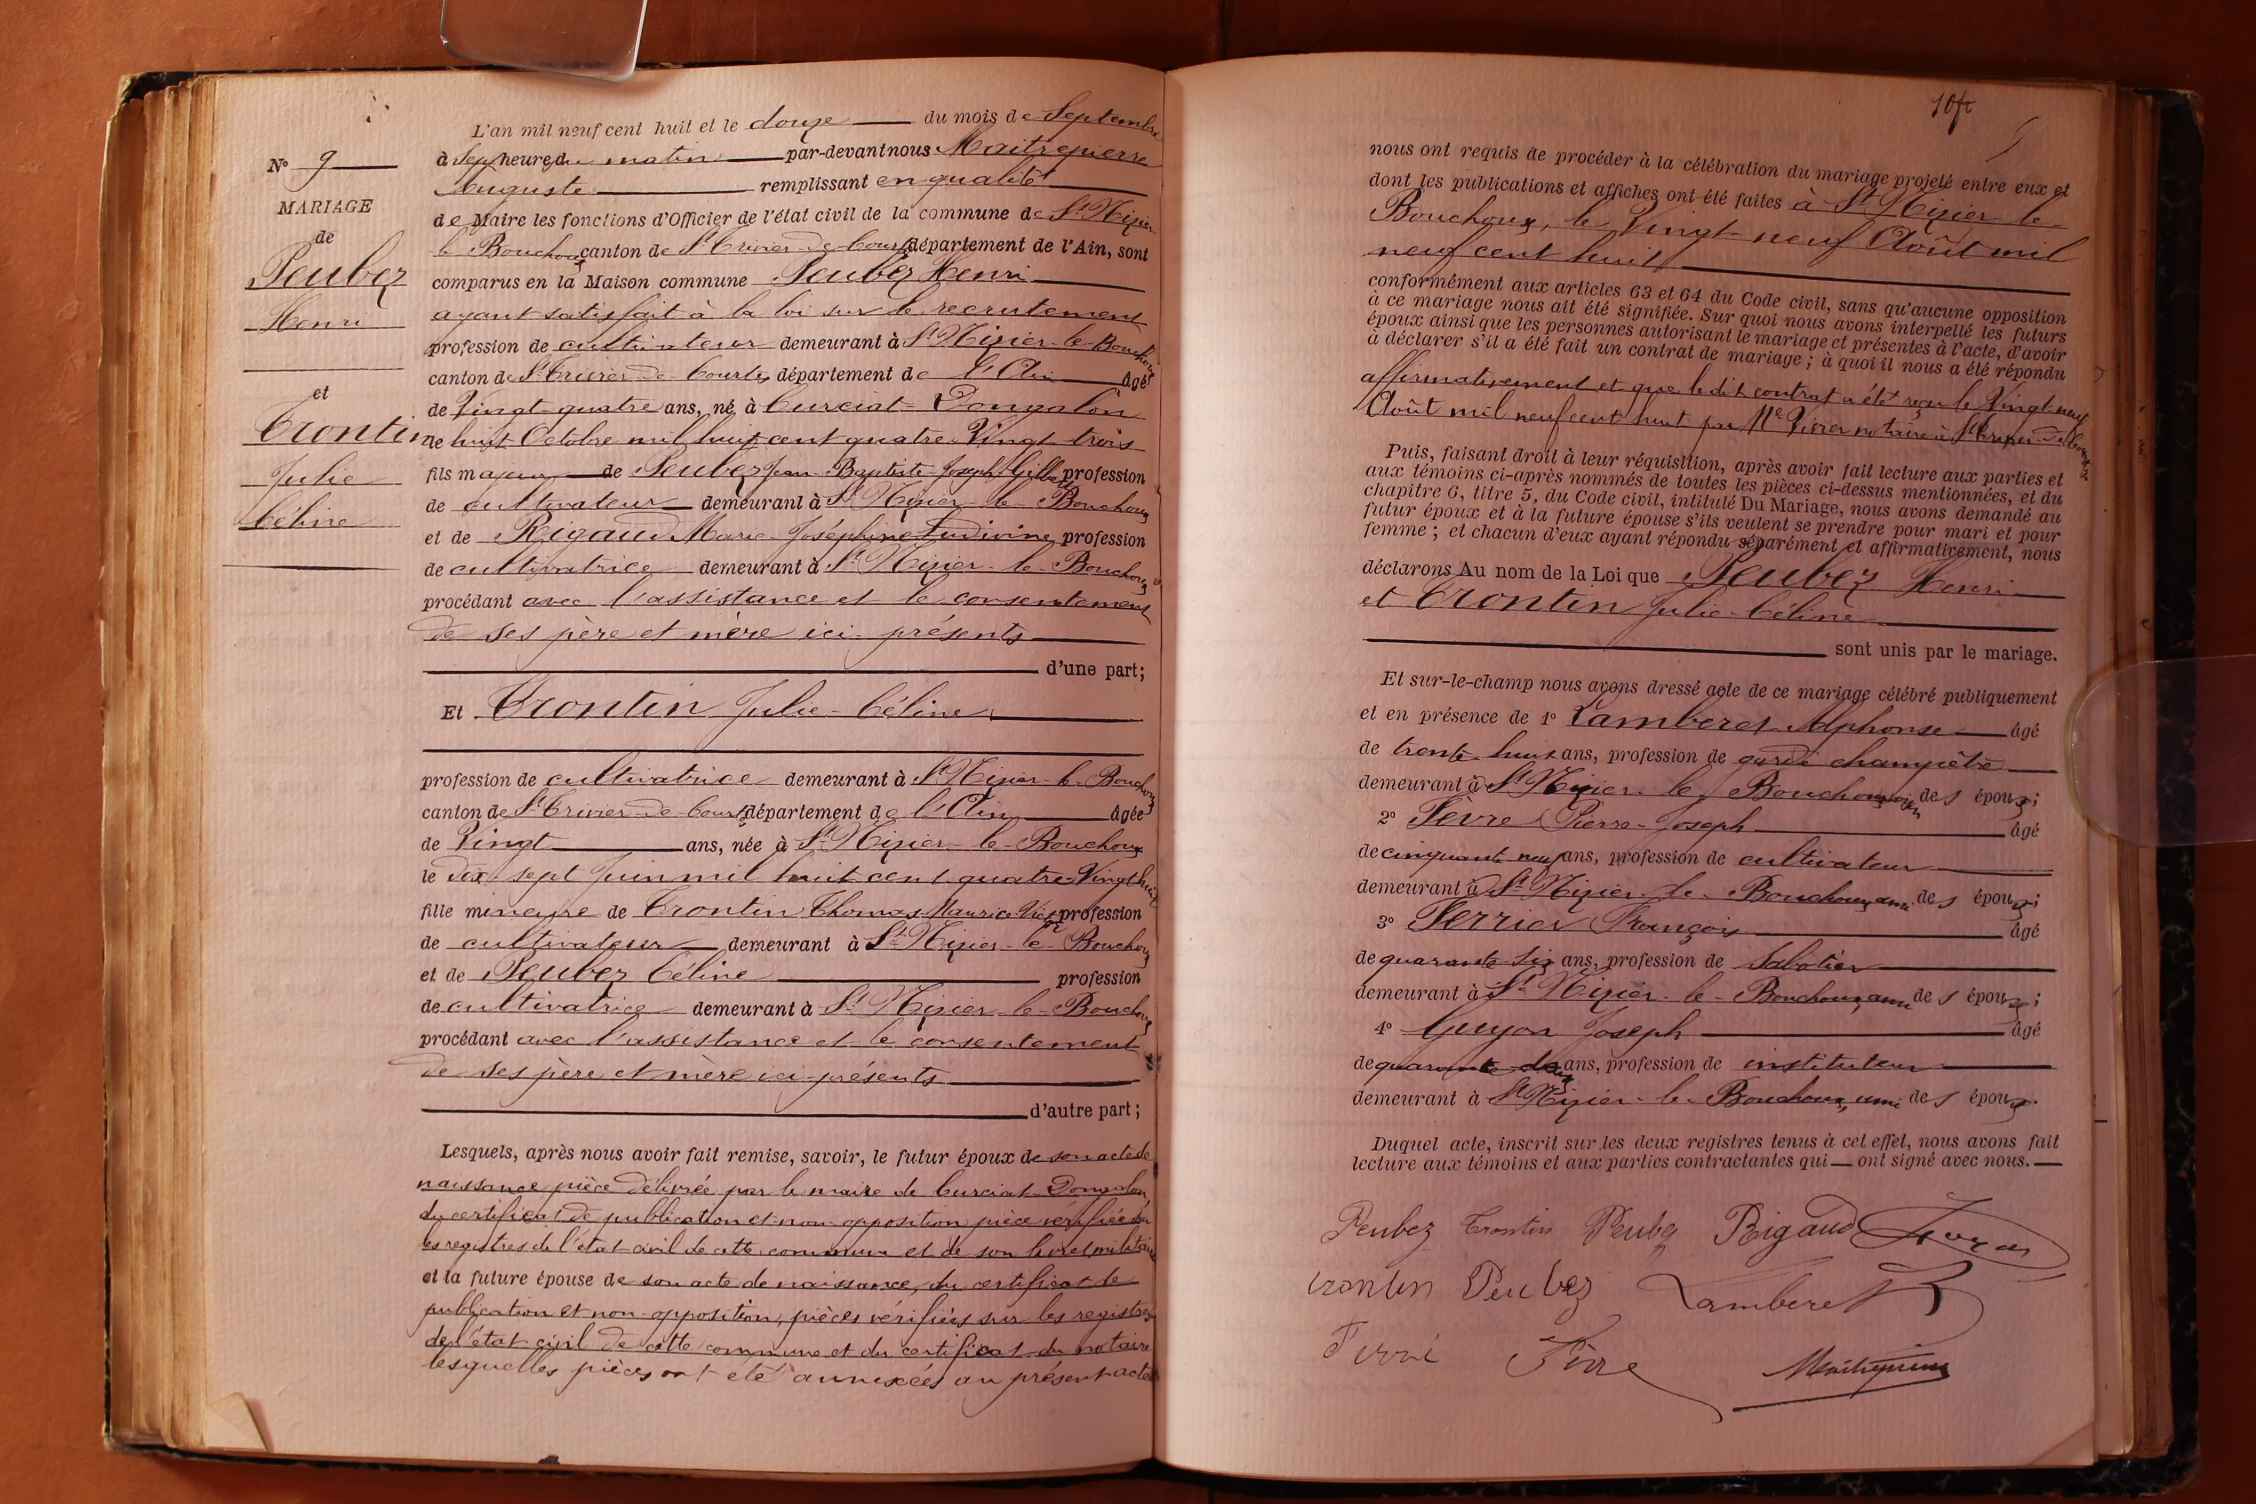 L'an mil neuf cent huit et le douze du mois de Septembre
N° 9
à Sept heures du matin par-devant nous Maitrepierre
Auguste remplissant en qualité
MARIAGE
de Maire les fonctions d'Officier de l'état civil de la commune de St Nizier
de
le Bouchoux canton de St Trivier-de-Courtes département de l'Ain, sont
Peubez
comparus en la Maison commune Peubez Henri
Henri
ayant satisfait à la loi sur le recrutement
profession de cultivateur demeurant à St Nizier-le-Bouchoux
canton de St Trivier-de-Courtes département de l'Ain âgé
et
de Vingt-quatre ans, né à Curciat-Dongalon
Trontin
le huit Octobre mil huit cent quatre-Vingt-trois
Julie
fils majeur de Peubez Jean-Baptiste-Joseph-Gilbert profession
de cultivateur demeurant à St Nizier-le-Bouchoux
Céline
et de Rigaud Marie-Joséphine Ludivine profession
de cultivatrice demeurant à St Nizier-le-Bouchoux
procédant avec l'assistance et le consentement
de ses père et mère ici présents
d'une part;
Et Trontin Julie-Céline
profession de cultivatrice demeurant à St Nizier-le-Bouchoux
canton de St Trivier-de-Courtes département de l'Ain âgée
de Vingt ans, née à St Nizier-le-Bouchoux
le dix sept Juin mil huit cent quatre-Vingt huit
fille mineure de Trontin Thomas Maurice profession
de cultivateur demeurant à St Nizier-le-Bouchoux
et de Peubez Céline profession
de cultivatrice demeurant à St Nizier-le-Bouchoux
procédant avec l'assistance et le consentement
de ses père et mère ici présents
d'autre part;
Lesquels, après nous avoir fait remise, savoir, le futur époux de son acte de
naissance pièce délivrée par le maire de Curciat Dongalon,
du certificat de publication et non-opposition pièce vérifiée sur
les registres de l'état-civil de cette commune et de son livret militaire
et la future épouse de son acte de naissance, du certificat de
publication et non-opposition, pièces vérifiées sur les registres
de l'état-civil de cette commune et du certificat du notaire
lesquelles pièces ont été annexées au présent acte
nous ont requis de procéder à la célébration du mariage projeté entre eux et
dont les publications et affiches ont été faites à St Nizier-le-
Bouchoux, le Vingt-neuf Août mil
neuf cent huit
conformément aux articles 63 et 64 du Code civil, sans qu'aucune opposition
à ce mariage nous ait été signifiée. Sur quoi nous avons interpellé les futurs
époux ainsi que les personnes autorisant le mariage et présentes à l'acte, d'avoir
à déclarer s'il a été fait un contrat de mariage; à quoi il nous a été répondu
affirmativement et que le dit contrat a été reçu le Vingt-neuf
Août mil neuf cent huit par Me notaire à St Trivier-de-Courtes
Puis, faisant droit à leur réquisition, après avoir fait lecture aux parties et
aux témoins ci-après nommés de toutes les pièces ci-dessus mentionnées, et du
chapitre 6, titre 5, du Code civil, intitulé Du Mariage, nous avons demandé au
futur époux et à la future épouse s'ils veulent se prendre pour mari et pour
femme; et chacun d'eux ayant répondu séparément et affirmativement, nous
déclarons Au nom de la Loi que Peubez Henri
et Trontin Julie-Céline
sont unis par le mariage.
Et sur-le-champ nous avons dressé acte de ce mariage célébré publiquement
et en présence de 1° Lamberet Alphonse âgé
de trente huit ans, profession de garde champêtre
demeurant à St Nizier-le-Bouchoux, voisin des époux;
2° Fèvre Pierre-Joseph âgé
de cinquante neuf ans, profession de cultivateur
demeurant à St Nizier-le-Bouchoux, ami des époux;
3° Ferrier François âgé
de quarante-six ans, profession de sabotier
demeurant à St Nizier-le-Bouchoux, ami des époux;
4° Guyon Joseph âgé
de quarante-deux ans, profession de instituteur
demeurant à St Nizier-le-Bouchoux, ami des époux.
Duquel acte, inscrit sur les deux registres tenus à cet effet, nous avons fait
lecture aux témoins et aux parties contractantes qui ont signé avec nous.
Peubez Trontin Peubez Rigaud
Trontin Peubez Lamberet
Fèvre Maitrepierre